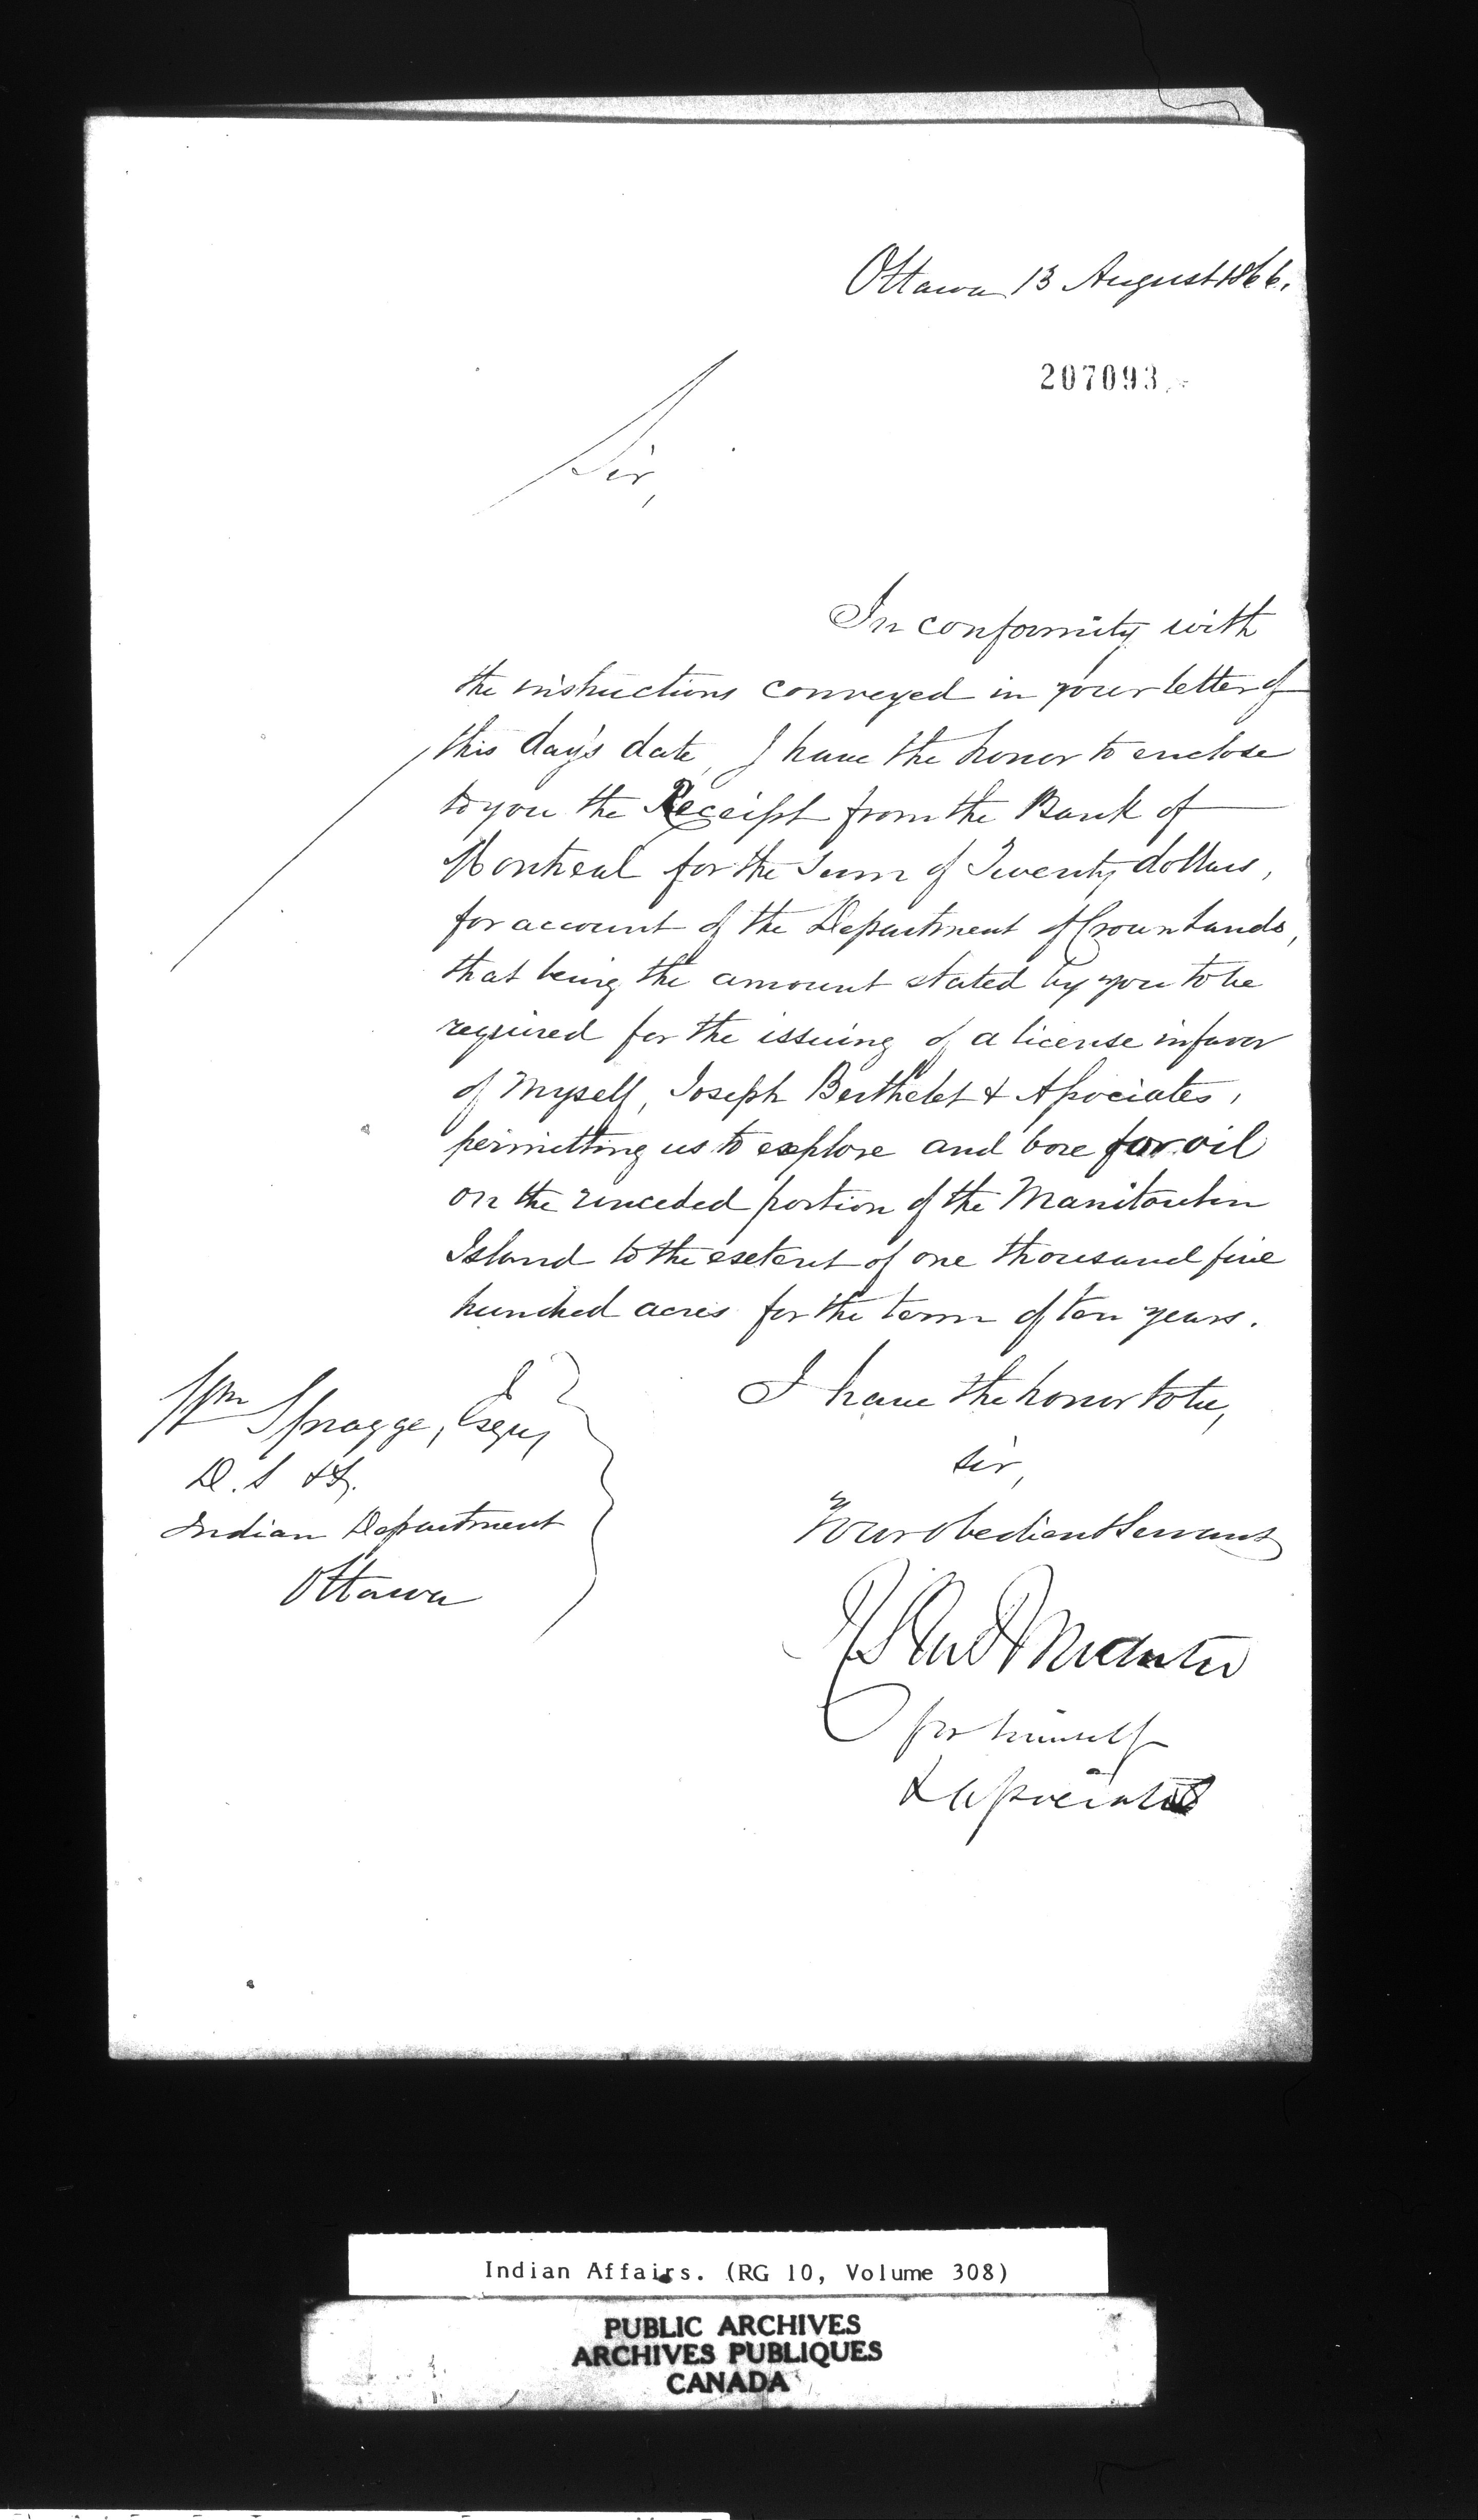 Ottawa 13 August 1866.
207093
Sir,
In conformity with
the instructions conveyed in your letter of
this day's date, I have the honor to enclose
to you the Receipt from the Bank of
Montreal for the Sum of Twenty dollars,
for account of the Department of Crown Lands,
that being the amount stated by you to be
required for the issuing of a license in favor
of Myself, Joseph Berthelet & Associates,
permitting us to explore and bore for oil
on the unceded portion of the Manitoulin
Island to the extent of one thousand five
hundred acres for the term of ten years.
I have the honor to be,
Sir,
Your obedient Servant
for himself
& associates
Wm Spragge, Esqr,
D. S
Indian Department
Ottawa
Indian Affairs. (RG 10, Volume 308)
PUBLIC ARCHIVES
ARCHIVES PUBLIQUES
CANADA